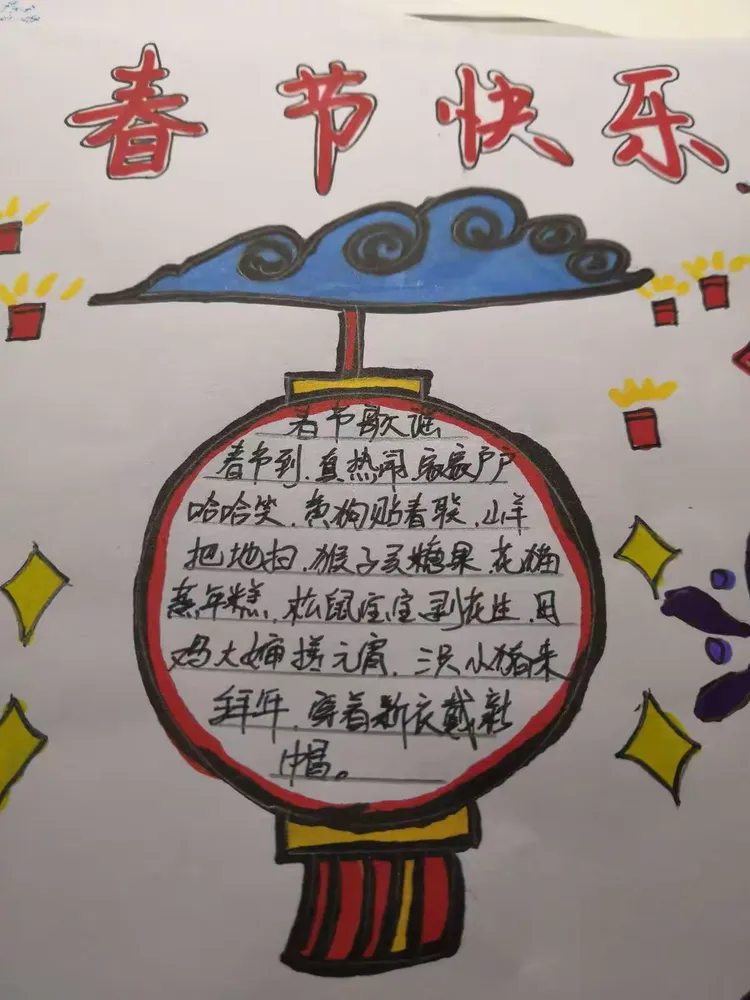 春节快乐
春节歌谣
春节到.真热闹.家家户户
哈哈笑.黄狗贴春联.山羊
把地扫.猴子卖糖果.花猫
蒸年糕.松鼠宝宝剥花生.母
鸡大婶搓元宵.三只小猪来
拜年.穿着新衣戴新
帽。